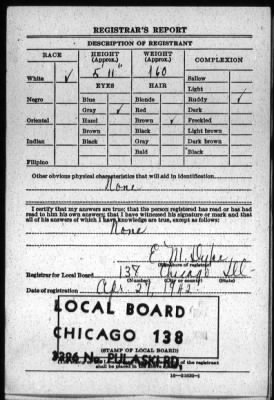 REGISTRAR'S REPORT
DESCRIPTION OF REGISTRANT
RACE HEIGHT (Approx.) WEIGHT (Approx.) COMPLEXION
5 11" 160 Sallow
White ✓ EYES HAIR Light
Negro Blue Blonde Ruddy ✓
Gray ✓ Red Dark
Oriental Hazel Brown ✓ Freckled
Brown Black Light brown
Indian Black Gray Dark brown
Bald Black
Filipino
Other obvious physical characteristics that will aid in identification
None
I certify that my answers are true; that the person registered has read or has had
read to him his own answers; that I have witnessed his signature or mark and that
all of his answers of which I have knowledge are true, except as follows:
None
E. M.
(Signature of registrar)
Registrar for Local Board 138 Chicago Ill
(Number) (City or county) (State)
Date of registration Apr. 27, 1942
LOCAL BOARD
CHICAGO 138
3296 No. PULASKI RD.
(STAMP OF LOCAL BOARD)
of the registrant
shall be placed in the